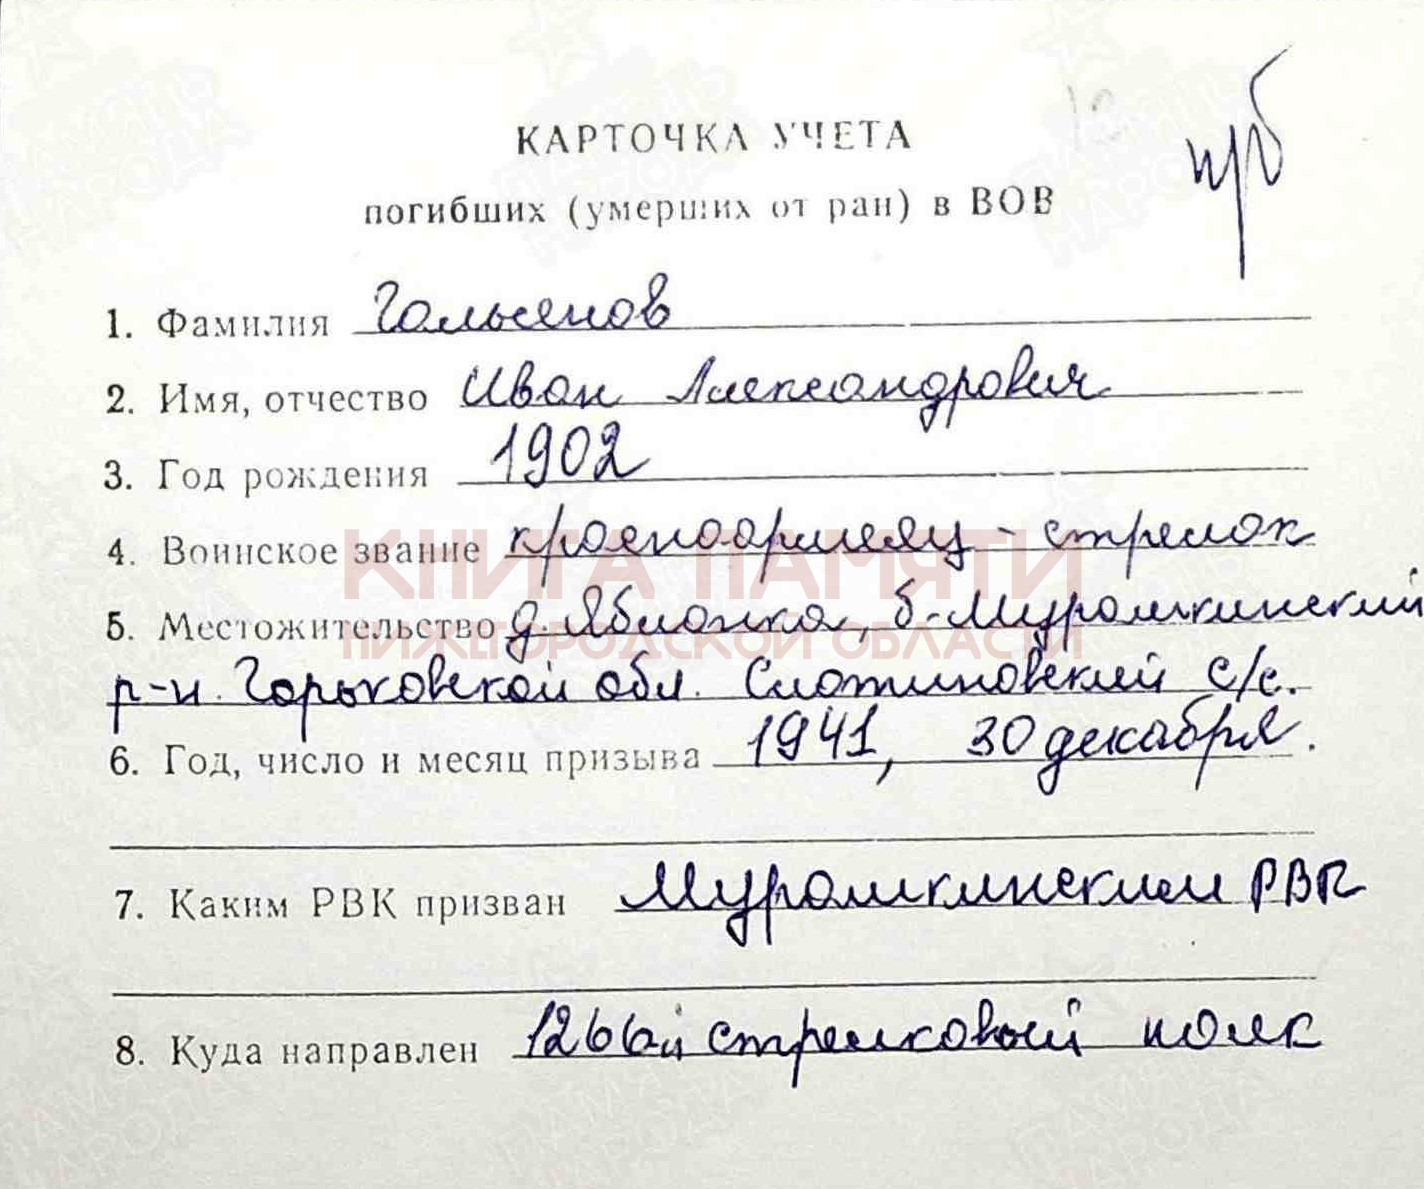 прб
КАРТОЧКА УЧЕТА
погибших (умерших от ран) в ВОВ
1. Фамилия Гальянов
2. Имя, отчество Иван Александрович
3. Год рождения 1902
4. Воинское звание красноармеец - стрелок
5. Местожительство д. Яблонка, б-Мурашкинский
р-н. Горьковской обл. Слотиновский с/с.
6. Год, число и месяц призыва 1941, 30 декабря.
7. Каким РВК призван Мурашкинским РВК
8. Куда направлен 1266й стрелковый полк
КНИГА ПАМЯТИ
НИЖЕГОРОДСКОЙ ОБЛАСТИ